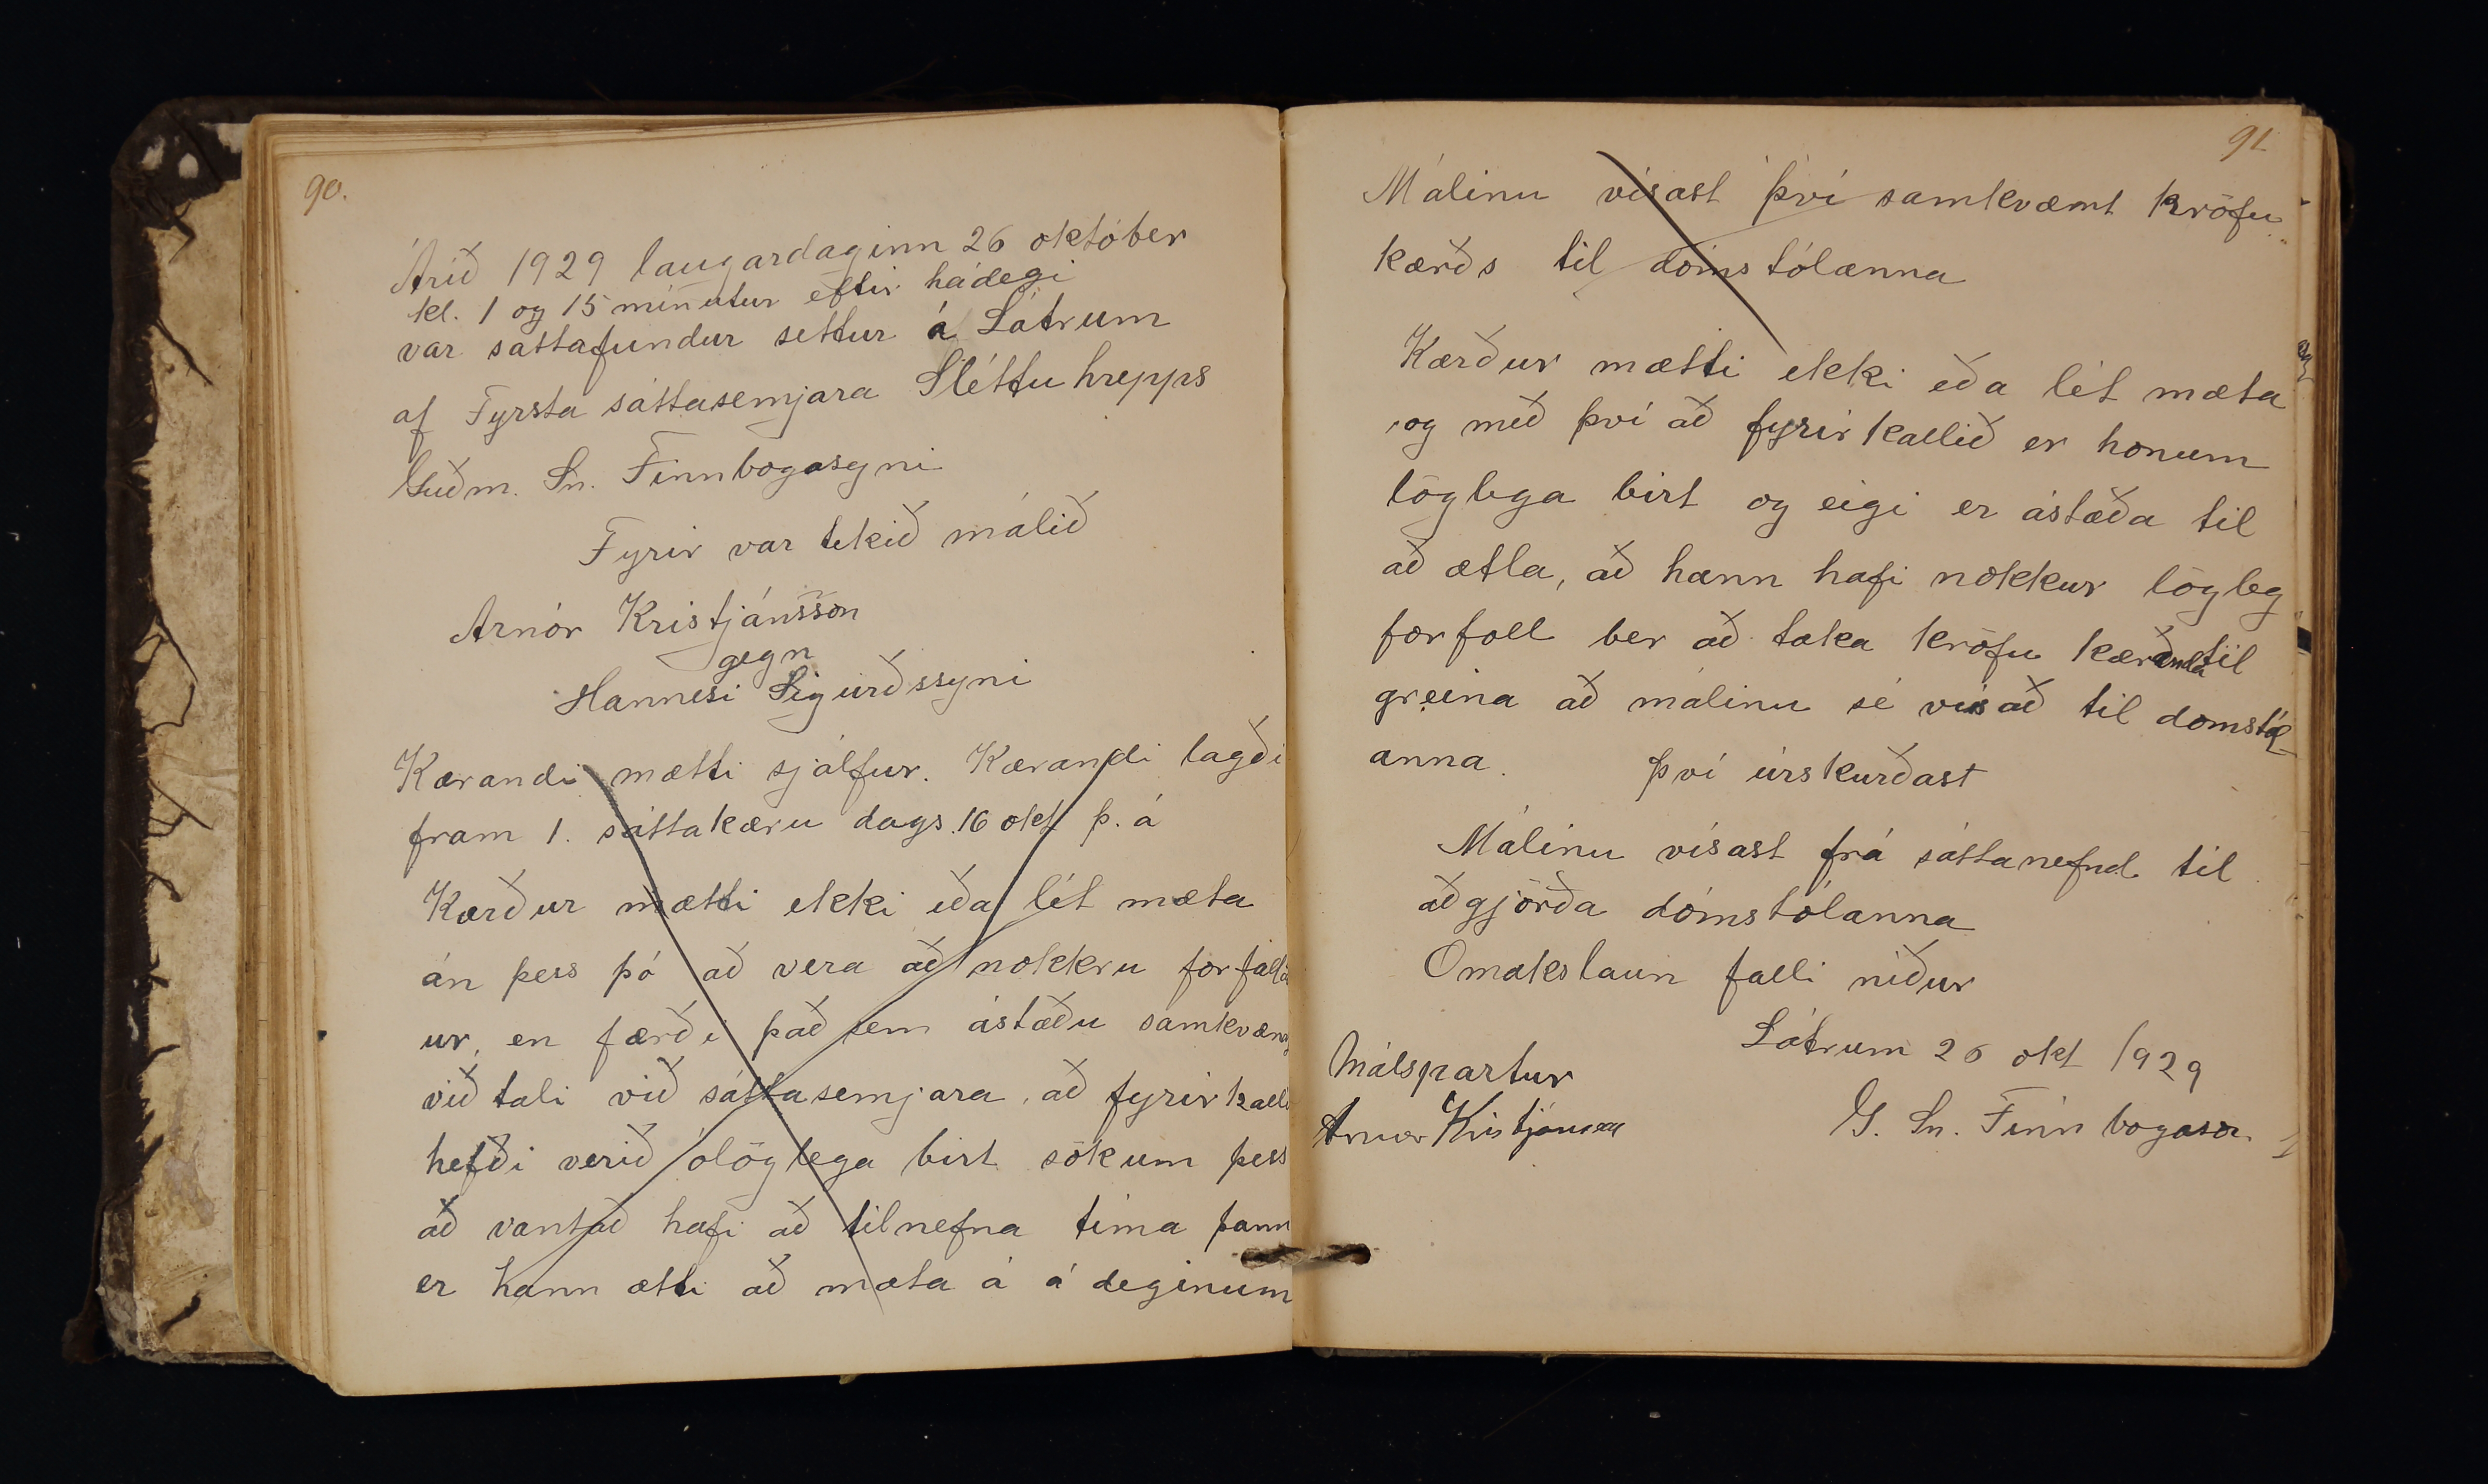 90.
Árið 1929 laugardaginn 26 október
kl. 1 og 15 mínutur eftir hádegi
var sáttafundur settur á Látrum
af Fyrsta sáttasemjara Sléttuhrepps
Guðm. Sn. Finnbogasyni
Fyrir var tekið málið
Arnór Kristjánsson
gegn
Hannesi Sigurðssyni
Kærandi mætti sjálfur. Kærandi lagði
fram 1. sáttakæru dags. 16 okt þ. á
Kærður mætti ekki eða lét mæta
án þess þó að vera að nokkru forfalla
ur, en færði það sem ástæðu samkvæmt
viðtali við sáttasemjara, að fyrirkalli
hefði verið ólöglega birt sökum þess
að vantað hafi að tilnefna tíma þann
er hann ætti að mæta á á deginum
91
Málinu vísast því samkvæmt kröfu
kærðs til dómstólanna
Kærður mætti ekki eða lét mæta
og með því að fyrirkallið er honum
löglega birt og eigi er ástæða til
að ætla, að hann hafi nokkur lögleg
forfoll ber að taka kröfu kæranda til
greina að málinu sé vísað til domstól-
anna. Því úrskurðast
Málinu vísast frá sáttanefnd til
aðgjörða dómstólanna
Omakslaun falli niður
Látrum 26 okt 1929
Málspartur
G. Sn. Finnbogason
Arnor Kristjánsson